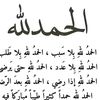 الحمد لله
الحمد لله بلا سبب ، الحمد لله بلا طلب
الحمد لله عدد خلقه ، الحمد لله حتى يرضى
الحمد لله إذا رضي ، الحمد لله بعد الرضا
الحمد لله حمداً كثيراً طيباً مباركاً فيه